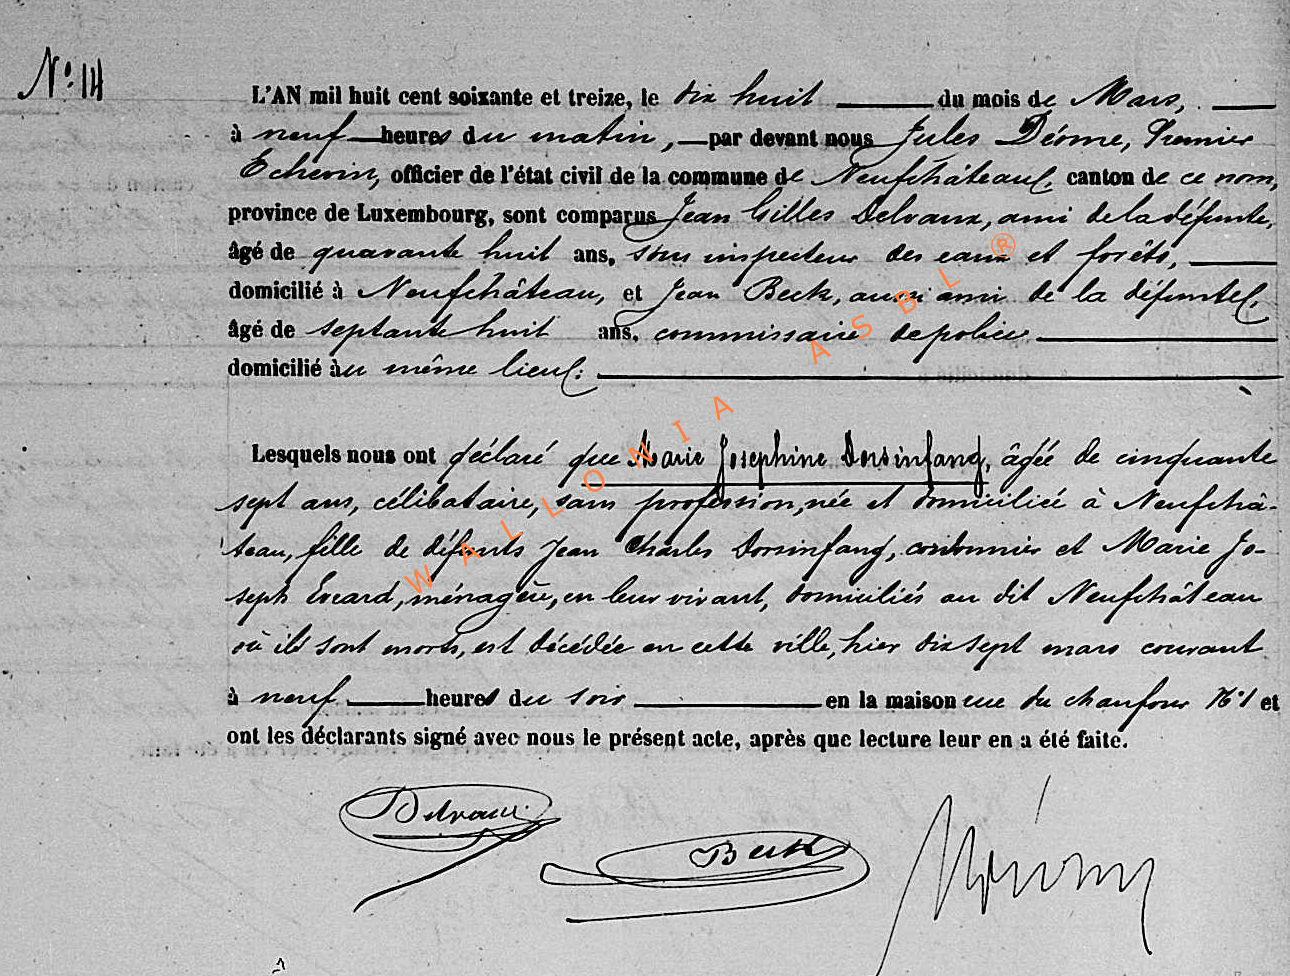 N° 14
L'AN mil huit cent soixante et treize, le dix huit du mois de Mars,
à neuf heures du matin, par devant nous Jules Déome, Premier
Echevin, officier de l'état civil de la commune de Neufchâteau, canton de ce nom,
province de Luxembourg, sont comparus Jean Gilles Delvaux, ami de la défunte,
âgé de quarante huit ans, sous inspecteur des eaux et forêts,
domicilié à Neufchâteau, et Jean Beck, aussi ami de la défunte,
âgé de septante huit ans, commissaire de police
domicilié au même lieu.
Lesquels nous ont déclaré que Marie Josephine Dorsinfang, âgée de cinquante
sept ans, célibataire, sans profession, née et domiciliée à Neufchâ-
teau, fille de défunts Jean Charles Dorsinfang, cordonnier et Marie Jo-
seph Evrard, ménagère, en leur vivant, domiciliés au dit Neufchâteau
où ils sont morts, est décédée en cette ville, hier dix sept mars courant
à neuf heures du soir en la maison rue du chaufour N° 1 et
ont les déclarants signé avec nous le présent acte, après que lecture leur en a été faite.
Delvaux
Beck
WALLONIA ASBL ®